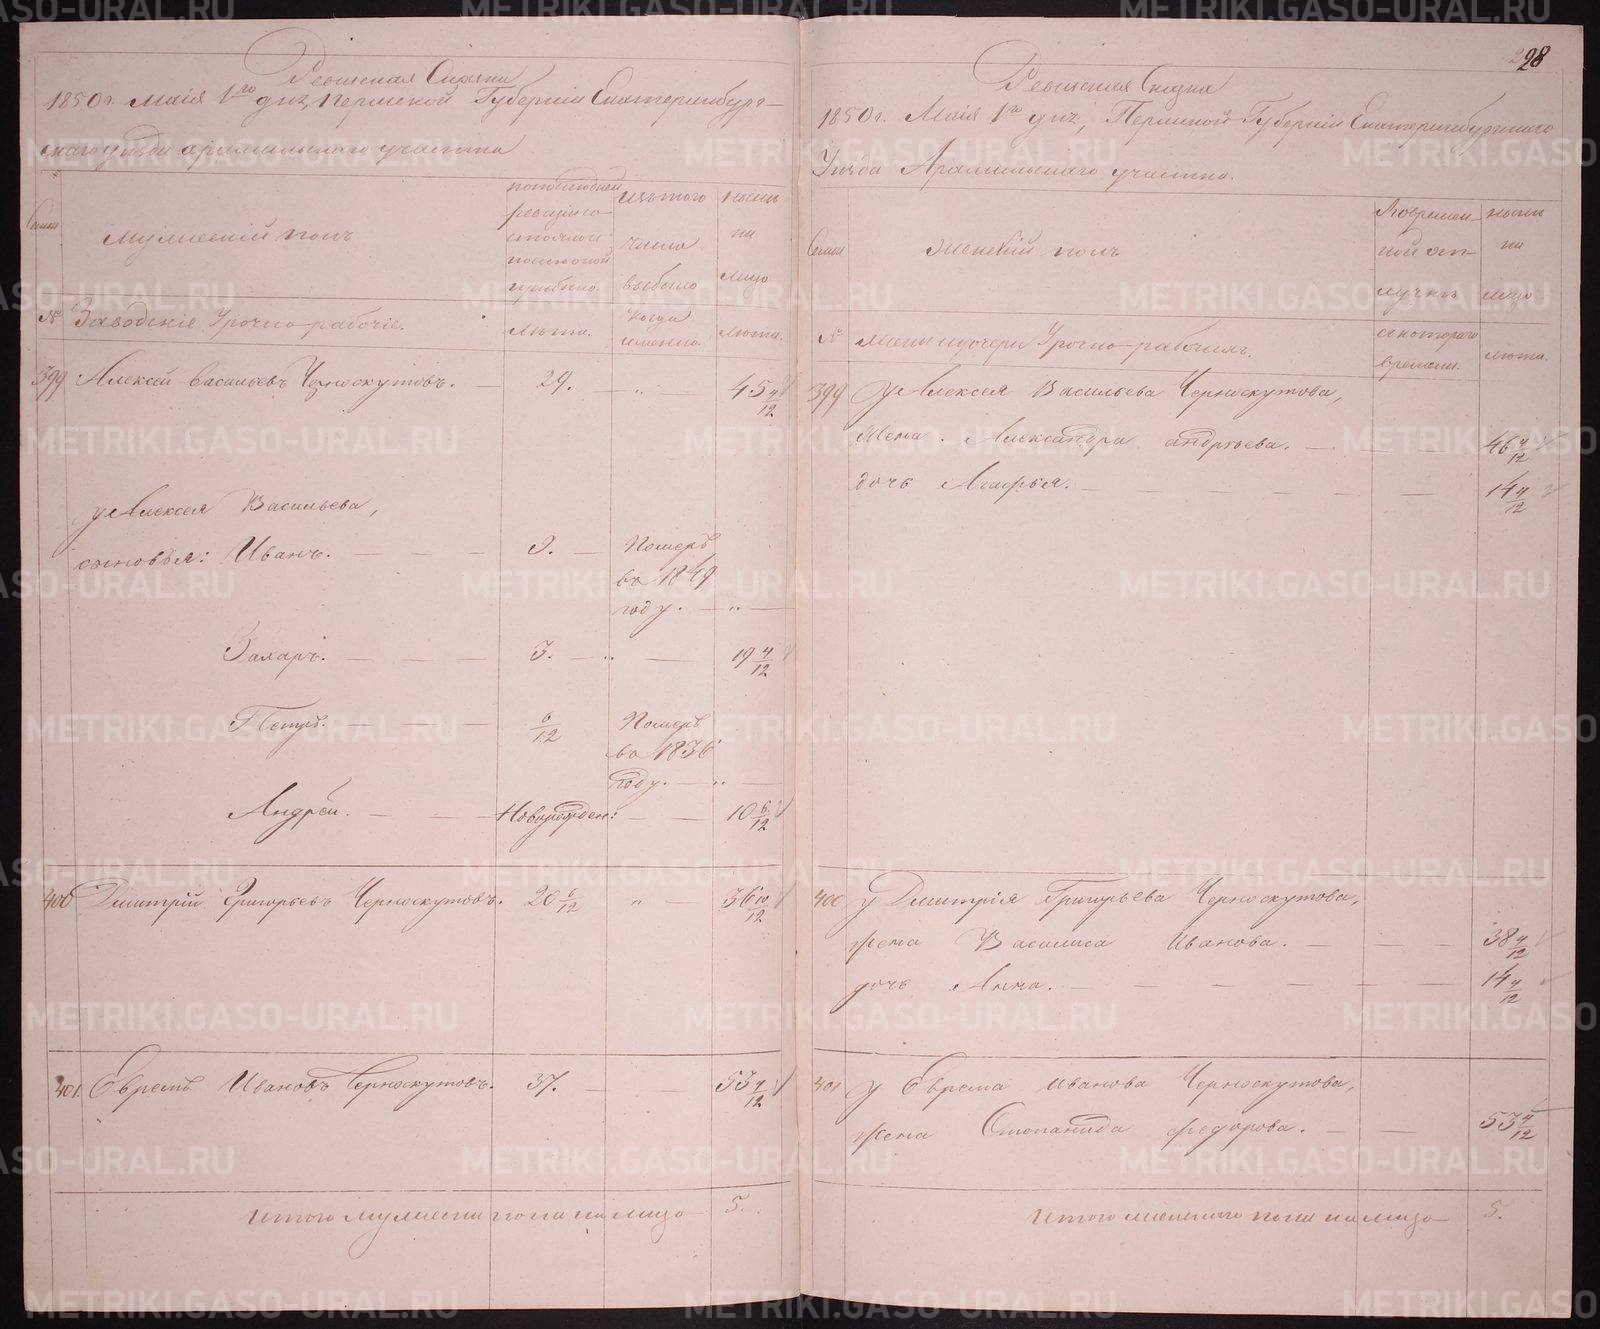 28
Ревизская Сказка
1850 г. Маія 1го дня, Пермской Губерніи Екатеринбург-
скаго уѣзда арамильскаго участка
Семьи
Мужескій полъ
по последней ревизіи состояло и после оной прибыло.
Изъ того числа выбыло
ныне на лицо
№
Заводскіе Урочно-рабочіе.
Лѣта.
Когда именно.
Лѣта.
399 Алексей Васильевъ Черноскутовъ. — 29. — „ — 45 4/12
у Алексея Васильева,
сыновья: Иванъ. — — — 9. — Померъ
въ 1849
году. — „ —
Захаръ. — — — 3. — „ — 19 4/12
Петръ. — — — 6/12 Померъ
въ 1836
году. — „ —
Андрей. — — — Новорожден: — — 10 6/12
400 Дмитрій Григорьевъ Черноскутовъ. 20 6/12 „ — 36 10/12
401. Евремъ Ивановъ Черноскутовъ. 37. — — 53 4/12
Итого мужеска пола на лицо — 5.
Ревизская Сказка
1850 г. Маія 1го дня, Пермской Губерніи Екатеринбургскаго
Уѣзда Арамильскаго участка.
Семьи
Женскій полъ
Во временной отлучкѣ
ныне на лицо
№
жены и дочери Урочно-рабочихъ.
съ котораго времени.
лѣта.
399 у Алексея Васильева Черноскутова,
Жена. Александра андрѣева. — — — 46 4/12
дочь Агафья. — — — — — 14 4/12
400 у Дмитрія Григорьева Черноскутова,
жена Василиса Иванова. — — — 38 4/12
дочь Анна. — — — — — — 14 4/12
401 у Еврема Иванова Черноскутова,
жена Степанида федорова. — — 53 4/12
Итого женскаго пола на лицо — 5.
METRIKI.GASO-URAL.RU